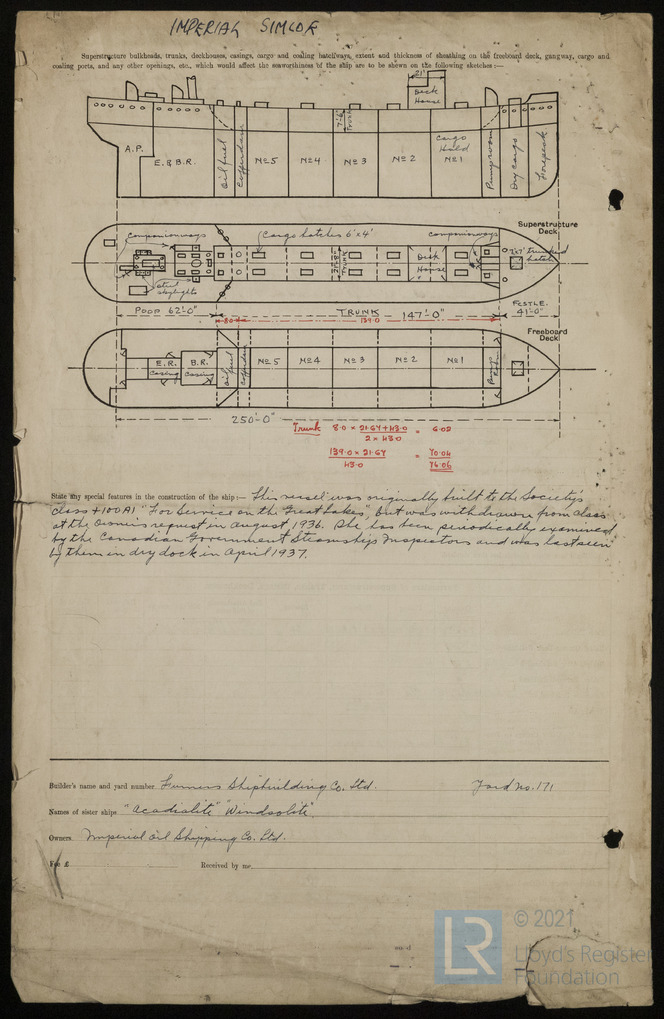 IMPERIAL SIMCOE
Superstructure bulkheads, trunks, deckhouses, casings, cargo and coaling hatchways, extent and thickness of sheathing on the freeboard deck, gangway, cargo and
coaling ports, and any other openings, etc., which would affect the seaworthiness of the ship are to be shewn on the following sketches :—
21'
Deck
House
7'-6"
Trunk
A.P.
E. & B.R.
Oil fuel
Cofferdam
No 5
No 4
No 3
No 2
Cargo
Hold
No 1
Pumproom
Dry Cargo
Forepeak
Superstructure
Deck
Companionways
Cargo hatches 6'x4'
companionways
Trunk
Deck
House
hatch
Steel
skylights
POOP 62'-0"
TRUNK 147'-0"
FCSTLE.
41'-0"
8.0
139.0
Freeboard
Deck
E.R.
Casing
B.R.
Casing
Oil fuel
Cofferdam
No 5
No 4
No 3
No 2
No 1
Pump
Room
250'-0"
Trunk 8.0 x 21.67 + 43.0 = 6.02
2 x 43.0
139.0 x 21.67 = 70.04
43.0
76.06
State any special features in the construction of the ship :— This vessel was originally built to the Society's
class +100A1 "For Service on the Great Lakes", but was withdrawn from class
at the Owners request in August 1936. She has been periodically examined
by the Canadian Government Steamships Inspectors and was last seen
by them in dry dock in April 1937.
Builder's name and yard number Furness Shipbuilding Co. Ltd. Yard No. 171
Names of sister ships "Acadialite" "Windsolite"
Owners Imperial Oil Shipping Co. Ltd.
Fee £ Received by me
LR
© 2021
Lloyd's Register
Foundation